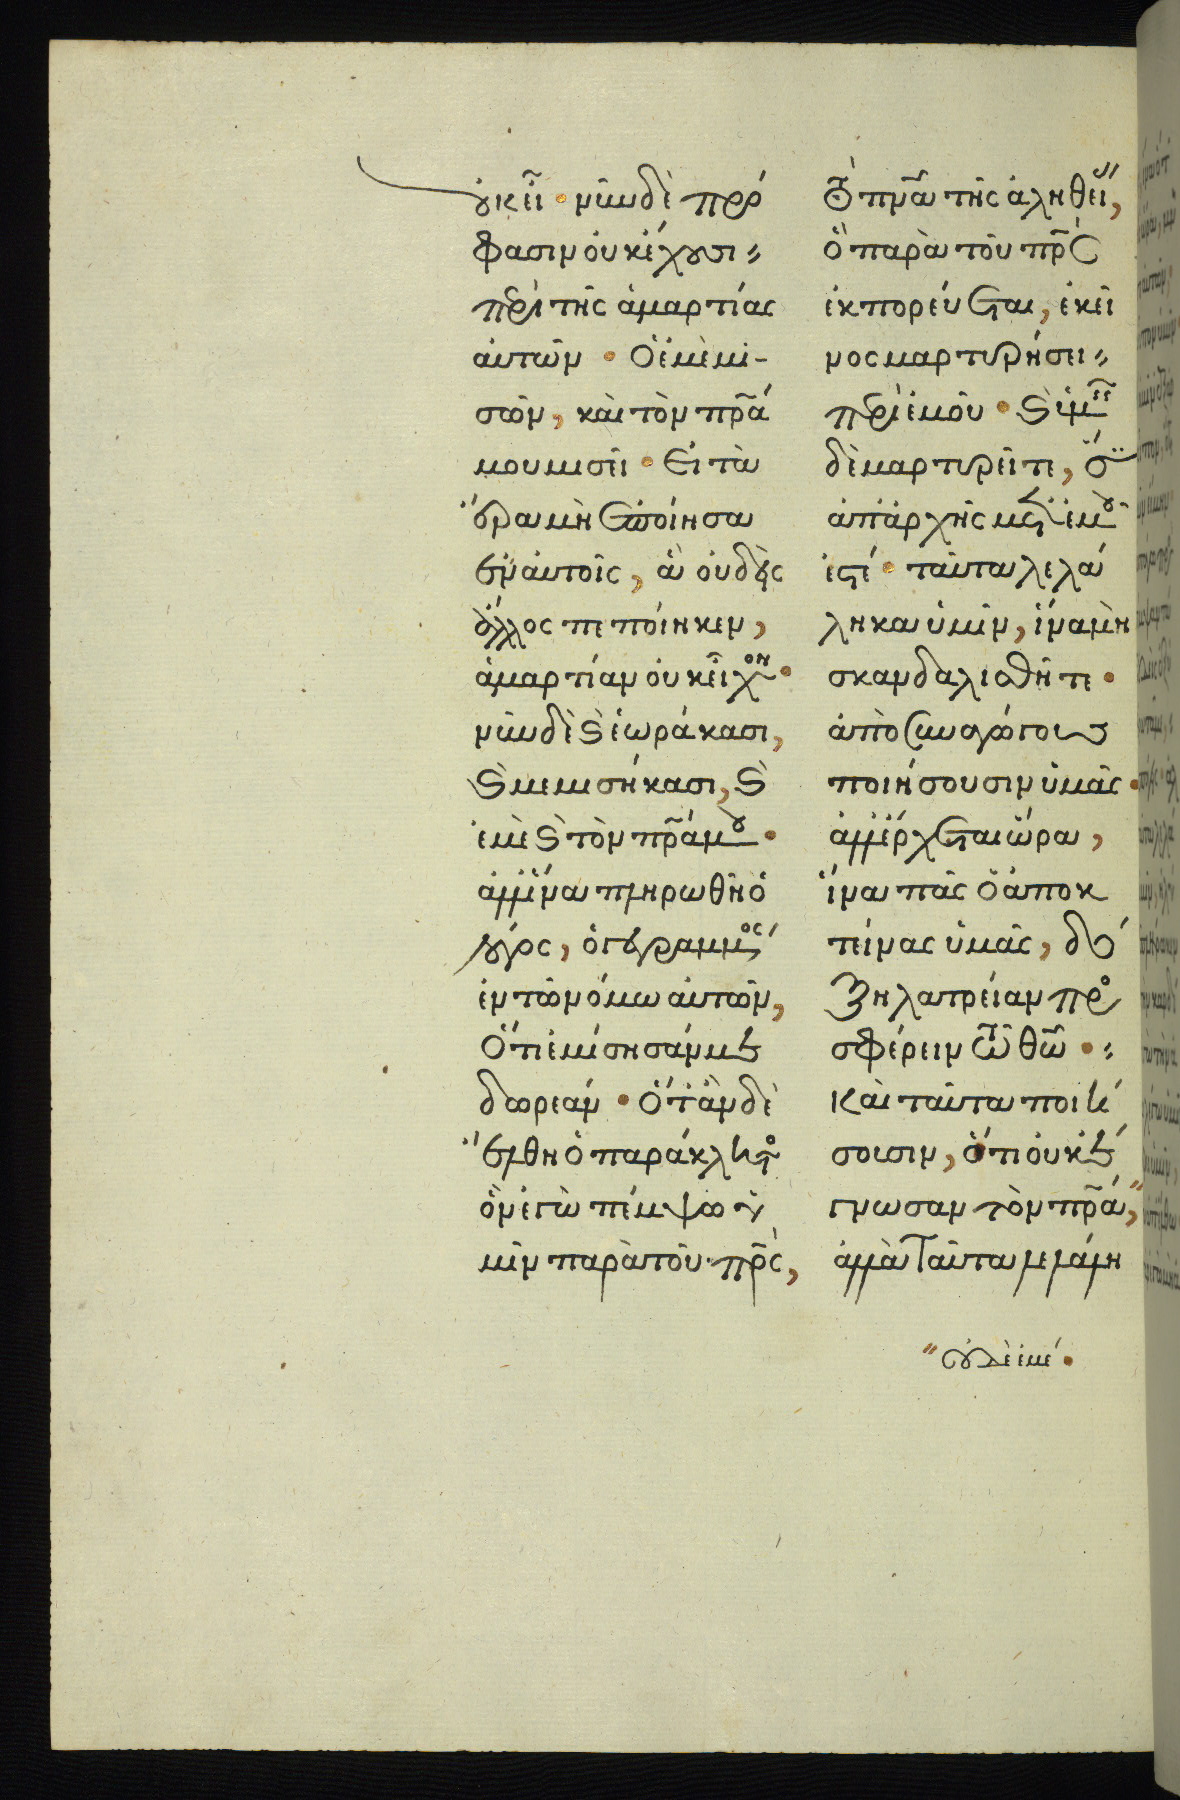 οὐκ εἶχον· νῦν δὲ πρό
φασιν οὐκ ἔχουσι
περὶ τῆς ἁμαρτίας
αὐτῶν· Ὁ ἐμὲ μι-
σῶν, καὶ τὸν πρ̅α
μου μισεῖ· Εἰ τὰ
ἔργα μὴ ἐποίησα
ἐν αὐτοῖς, ἃ οὐδεὶς
ἄλλος πεποίηκεν,
ἁμαρτίαν οὐκ εἶχον·
νῦν δὲ καὶ ἑωράκασι,
καὶ μεμισήκασι, καὶ
ἐμὲ καὶ τὸν πρ̅α μου·
ἀλλ' ἵνα πληρωθῇ ὁ
λόγος, ὁ γεγραμμένος
ἐν τῷ νόμῳ αὐτῶν,
Ὅτι ἐμίσησάν με
δωρεάν· Ὅταν δὲ
ἔλθῃ ὁ παράκλητος
ὃν ἐγὼ πέμψω ὑ
μῖν παρὰ τοῦ πρ̅ς,
Τὸ πν̅α τῆς ἀληθείας,
ὃ παρὰ τοῦ πρ̅ς
ἐκπορεύεται, ἐκεῖ
νος μαρτυρήσει
περὶ ἐμοῦ· καὶ ὑμεῖς
δὲ μαρτυρεῖτε, ὅτι
ἀπ' ἀρχῆς μετ' ἐμοῦ
ἐστέ· ταῦτα λελά
ληκα ὑμῖν, ἵνα μὴ
σκανδαλισθῆτε·
ἀποσυναγώγους
ποιήσουσιν ὑμᾶς·
ἀλλ' ἔρχεται ὥρα,
ἵνα πᾶς ὁ ἀποκ
τείνας ὑμᾶς, δό
ξῃ λατρείαν προ
σφέρειν τῷ θ̅ω·
Καὶ ταῦτα ποιή
σουσιν, ὅτι οὐκ ἔ
γνωσαν τὸν πρ̅α,"
ἀλλὰ Ταῦτα λελάλη
"οὐδὲ ἐμέ·